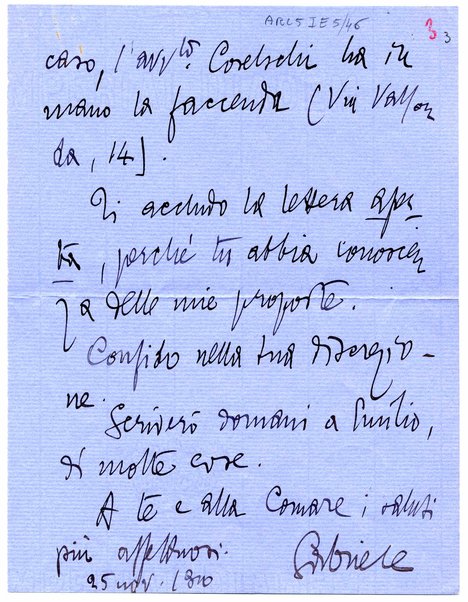 ARC 5 I E 5/46
3 3
caso, l'avv.to Coselschi ha in
mano la faccenda (Via Valfon
da, 14).
Ti accludo la lettera aper
ta, perché tu abbia conoscen
za delle mie proposte.
Confido nella tua discrezio-
ne.
Scriverò domani a Emilio,
di molte cose.
A te e alla Comare i saluti
più affettuosi.
Gabriele
25 nov. 1910